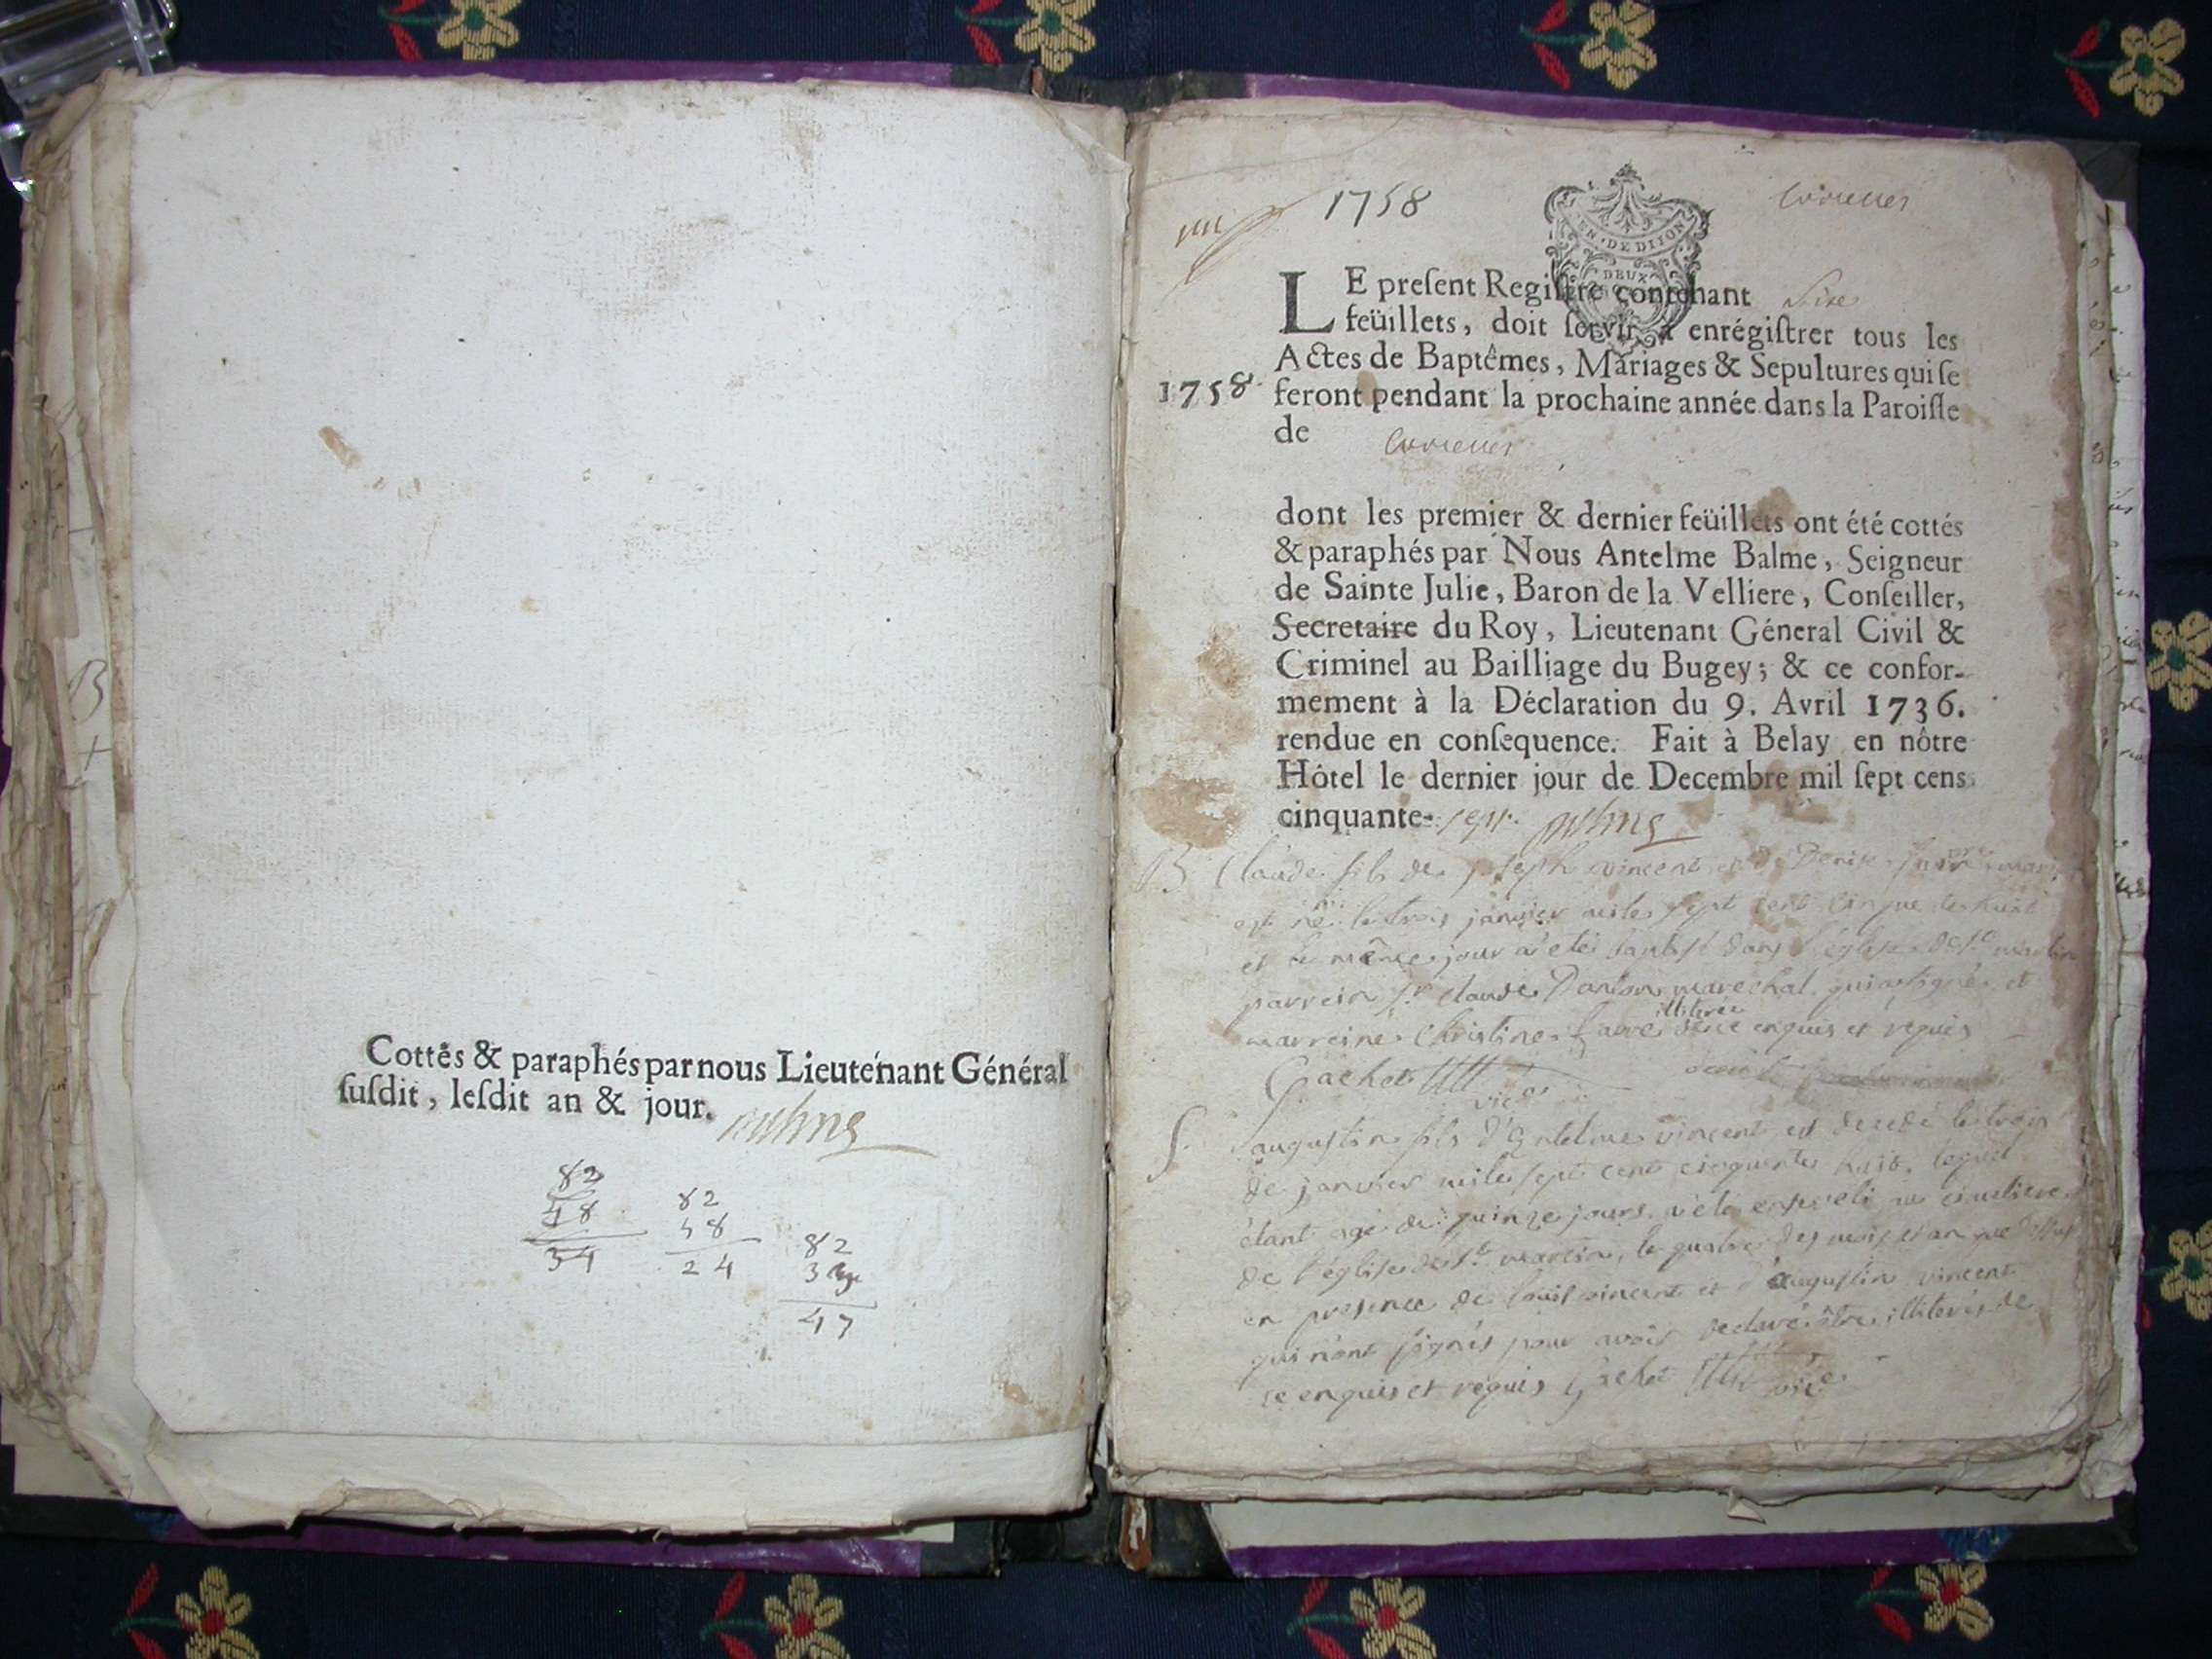 Cottés & paraphés par nous Lieutenant Général
susdit, lesdit an & jour.
82
48
34
82
58
24
82
47
1758
GEN. DE DIJON
DEUX
LE present Registre contenant Six
feüillets, doit servir à enrégistrer tous les
Actes de Baptêmes, Mariages & Sepultures qui se
1758. feront pendant la prochaine année dans la Paroisse
de
dont les premier & dernier feüillets ont été cottés
& paraphés par Nous Antelme Balme, Seigneur
de Sainte Julie, Baron de la Velliere, Conseiller,
Secretaire du Roy, Lieutenant Géneral Civil &
Criminel au Bailliage du Bugey; & ce confor-
mement à la Déclaration du 9. Avril 1736.
rendue en consequence. Fait à Belay en nôtre
Hôtel le dernier jour de Decembre mil sept cens
cinquante-sept. Balme
B. Claude fils de joseph vincent et de Denise
est né le trois janvier mile sept cent cinquante huit
et le même jour a été batisé dans l'église de St martin
parrein Sr claude Danton marechal qui a signé et
marreine Christine favre illiterée enquis et requis
Gachet vic.
S. augustin fils d'Antelme vincent est decedé le trois
de janvier mile sept cent cinquante huit, lequel
étant agé de quinze jours a été enseveli au cimetiere
de l'église de St martin, le quatre des mois et an que dessus
en presence de louis vincent et d'augustin vincent
qui n'ont signés pour avoir declaré être illiterés de
ce enquis et requis Gachet vic.